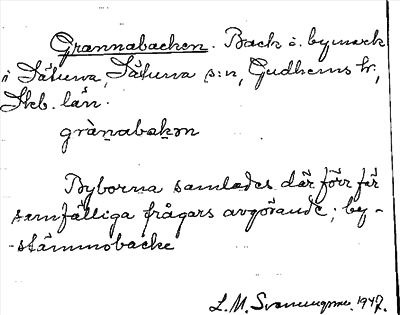 Grannabacken. Back å bymark
i Sätuna, Sätuna s:n, Gudhems hr,
Skb. län.
grànabakən
Byborna samlades där förr för
samfälliga frågors avgörande; by-
-stämmobacke
L. M. Svanungsson. 1947.